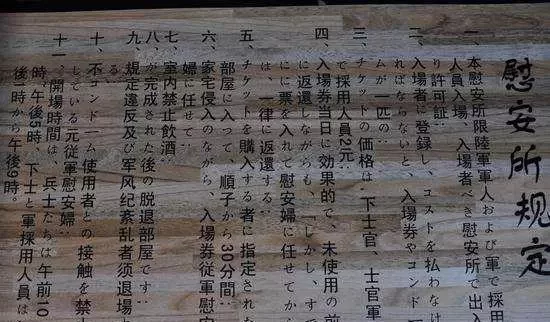 慰安所规定
一、本慰安所限陸軍軍人および軍で採用
人員入場、入場者べき慰安所で出入
り許可証‥
二、入場者に登録し、コストを払わなけ
ればならないと、入場券やコンドー
ムが一匹の‥
三、チケットの価格は‥下士官、士官軍
で採用人員2元‥
四、入場券当日に効果的で、未使用の前
に返還しながらも、しかし、すで
にに票を入れて慰安婦に任せてから
は、一律に返還する‥
五、チケットを購入する者に指定された
部屋に入って、順子から30分間‥
六、家宅侵入のながら、入場券従軍慰安
婦に任せて‥
七、室内禁止飲酒‥
八、が完成された後の脱退部屋です‥
九、規定違反及び军风纪紊乱者须退場よ
る‥
十、不コンドーム使用者との接触を禁
している元従軍慰安婦‥
十一、開場時間は、兵士たちは午前10
時、午後5時、下士と軍採用人員は
後1時から午後9時。